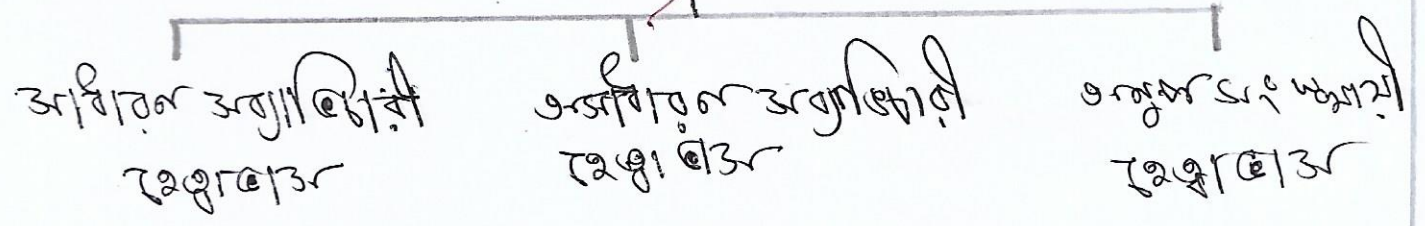 সাধারন সব্যাভিচারী
হেত্বাভাস
অসাধারন সব্যাভিচারী
হেত্বাভাস
অনুপসংহারী
হেত্বাভাস